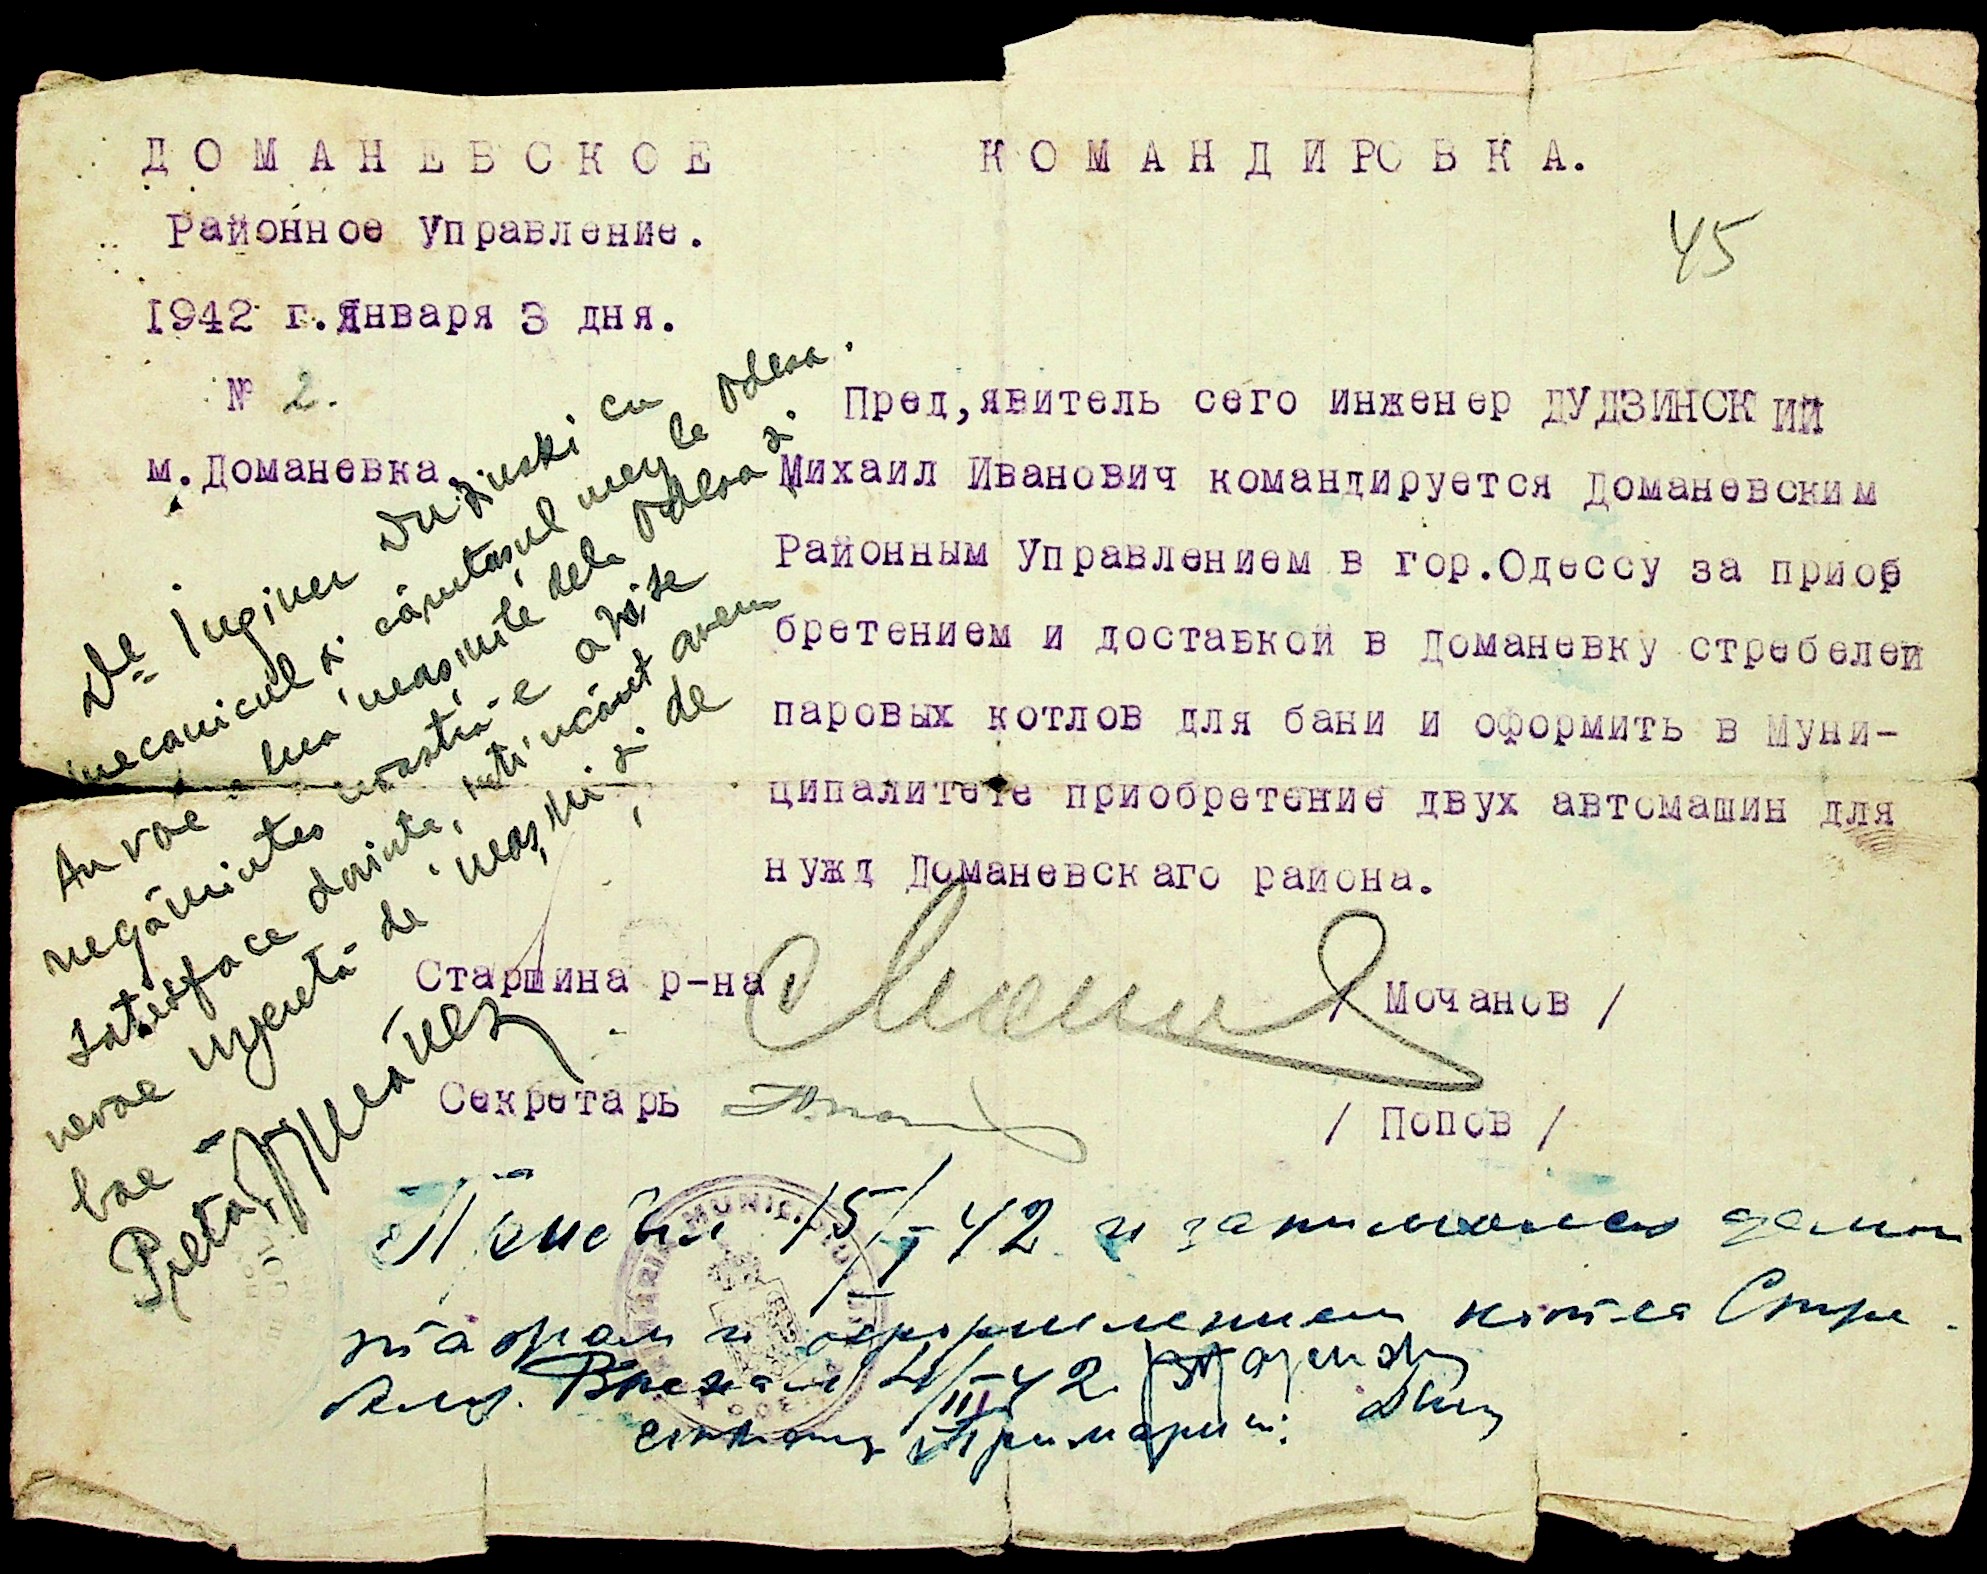 ДОМАНЕВСКОЕ
Районное Управление.
1942 г. Января 3 дня.
№ 2.
м. Доманевка
КОМАНДИРОВКА.
45
Пред,явитель сего инженер ДУДЗИНСКИЙ
Михаил Иванович командируется Доманевским
Районным Управлением в гор. Одессу за приоб
бретением и доставкой в Доманевку стребелей
паровых котлов для бани и оформить в Муни-
ципалитете приобретение двух автомашин для
нужд Доманевскаго района.
Старшина р-на / Мочанов /
Секретарь / Попов /
Dle Inginer Duzinski cu
mecanicul și căruțașul merg la Odesa.
Au voe a lua mașinile dela Odesa și
negăni noastră e a
satisface dorința, întrucât avem
nevoe urgentă de mașini și de
Pretor
15/I 42 и занимался
и оформлением котла Стре
4/III 42
Примарии:
MUNICIPIULUI